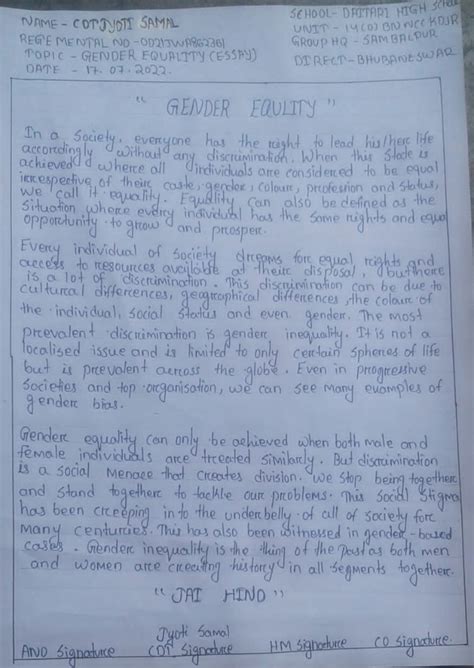 NAME - CDT JYOTI SAMAL
SCHOOL- DAITARI HIGH SCHOOL
REGEMENTAL NO -
UNIT - 14(O) BN NCC KDJR
TOPIC - GENDER EQUALITY (ESSAY)
GROUP HQ - SAMBALPUR
DATE - 17.07.2022
DIRECT- BHUBANESWAR
" GENDER EQULITY "
In a Society, everyone has the right to lead his/her life
accordingly without any discrimination. When this State is
achieved where all individuals are considered to be equal
irrespective of their caste, gender, colour, profession and status,
we call it equality. Equality can also be defined as the
situation where every individual has the same rights and equal
opportunity to grow and prosper.
Every individual of society dreams for equal rights and
access to resources available at their disposal, but there
is a lot of discrimination. This discrimination can be due to
cultural differences, geographical differences, the colour of
the individual, social status and even gender. The most
prevalent discrimination is gender inequality. It is not a
localised issue and is limited to only certain spheres of life
but is prevalent across the globe. Even in progressive
societies and top organisation, we can see many examples of
gender bias.
Gender equality can only be achieved when both male and
female individuals are treated similarly. But discrimination
is a social menace that creates division. We stop being together
and stand together to tackle our problems. This social stigma
has been creeping into the underbelly of all of society for
many centuries. This has also been witnessed in gender-based
cases. Gender inequality is the thing of the past as both men
and women are creating history in all segments together.
" JAI HIND "
Jyoti Samal
ANO Signature CDT Signature HM Signature CO Signature